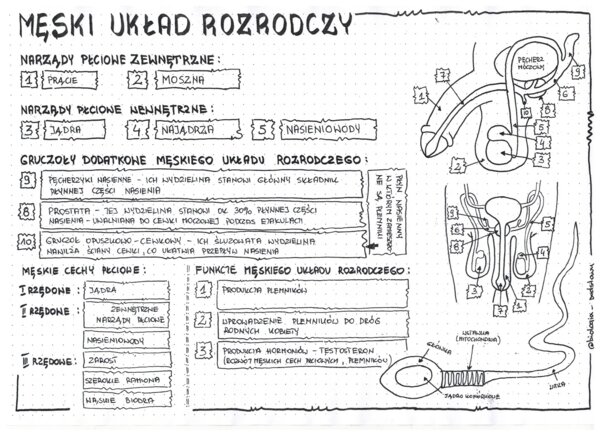 MĘSKI UKŁAD ROZRODCZY
NARZĄDY PŁCIOWE ZEWNĘTRZNE:
1 PRĄCIE 2 MOSZNA
NARZĄDY PŁCIOWE WEWNĘTRZNE:
3 JĄDRA 4 NAJĄDRZA 5 NASIENIOWODY
GRUCZOŁY DODATKOWE MĘSKIEGO UKŁADU ROZRODCZEGO:
9 PĘCHERZYKI NASIENNE - ICH WYDZIELINA STANOWI GŁÓWNY SKŁADNIK
PŁYNNEJ CZĘŚCI NASIENIA
8 PROSTATA - JEJ WYDZIELINA STANOWI OK. 30% PŁYNNEJ CZĘŚCI
NASIENIA - UWALNIANA DO CEWKI MOCZOWEJ PODCZAS EJAKULACJI
10 GRUCZOŁ OPUSZKOWO-CEWKOWY - ICH ŚLUZOWATA WYDZIELINA
NAWILŻA ŚCIANY CEWKI, CO UŁATWIA PRZEPŁYW NASIENIA
PŁYN NASIENNY
W KTÓRYM ZAWIESZONE
SĄ PLEMNIKI
MĘSKIE CECHY PŁCIOWE:
I RZĘDOWE: JĄDRA
II RZĘDOWE: ZEWNĘTRZNE
NARZĄDY PŁCIOWE
NASIENIOWODY
III RZĘDOWE: ZAROST
SZEROKIE RAMIONA
WĄSKIE BIODRA
FUNKCJE MĘSKIEGO UKŁADU ROZRODCZEGO:
1 PRODUKCJA PLEMNIKÓW
2 WPROWADZENIE PLEMNIKÓW DO DRÓG
RODNYCH KOBIETY
3 PRODUKCJA HORMONÓW - TESTOSTERON
(ROZWÓJ MĘSKICH CECH PŁCIOWYCH, PLEMNIKÓW)
PĘCHERZ
MOCZOWY
1
7
2
9
6
8
10
5
4
3
9
6
8
5
4
3
7
GŁÓWKA
WSTAWKA
(MITOCHONDRIA)
JĄDRO KOMÓRKOWE
WITKA
@biologia_